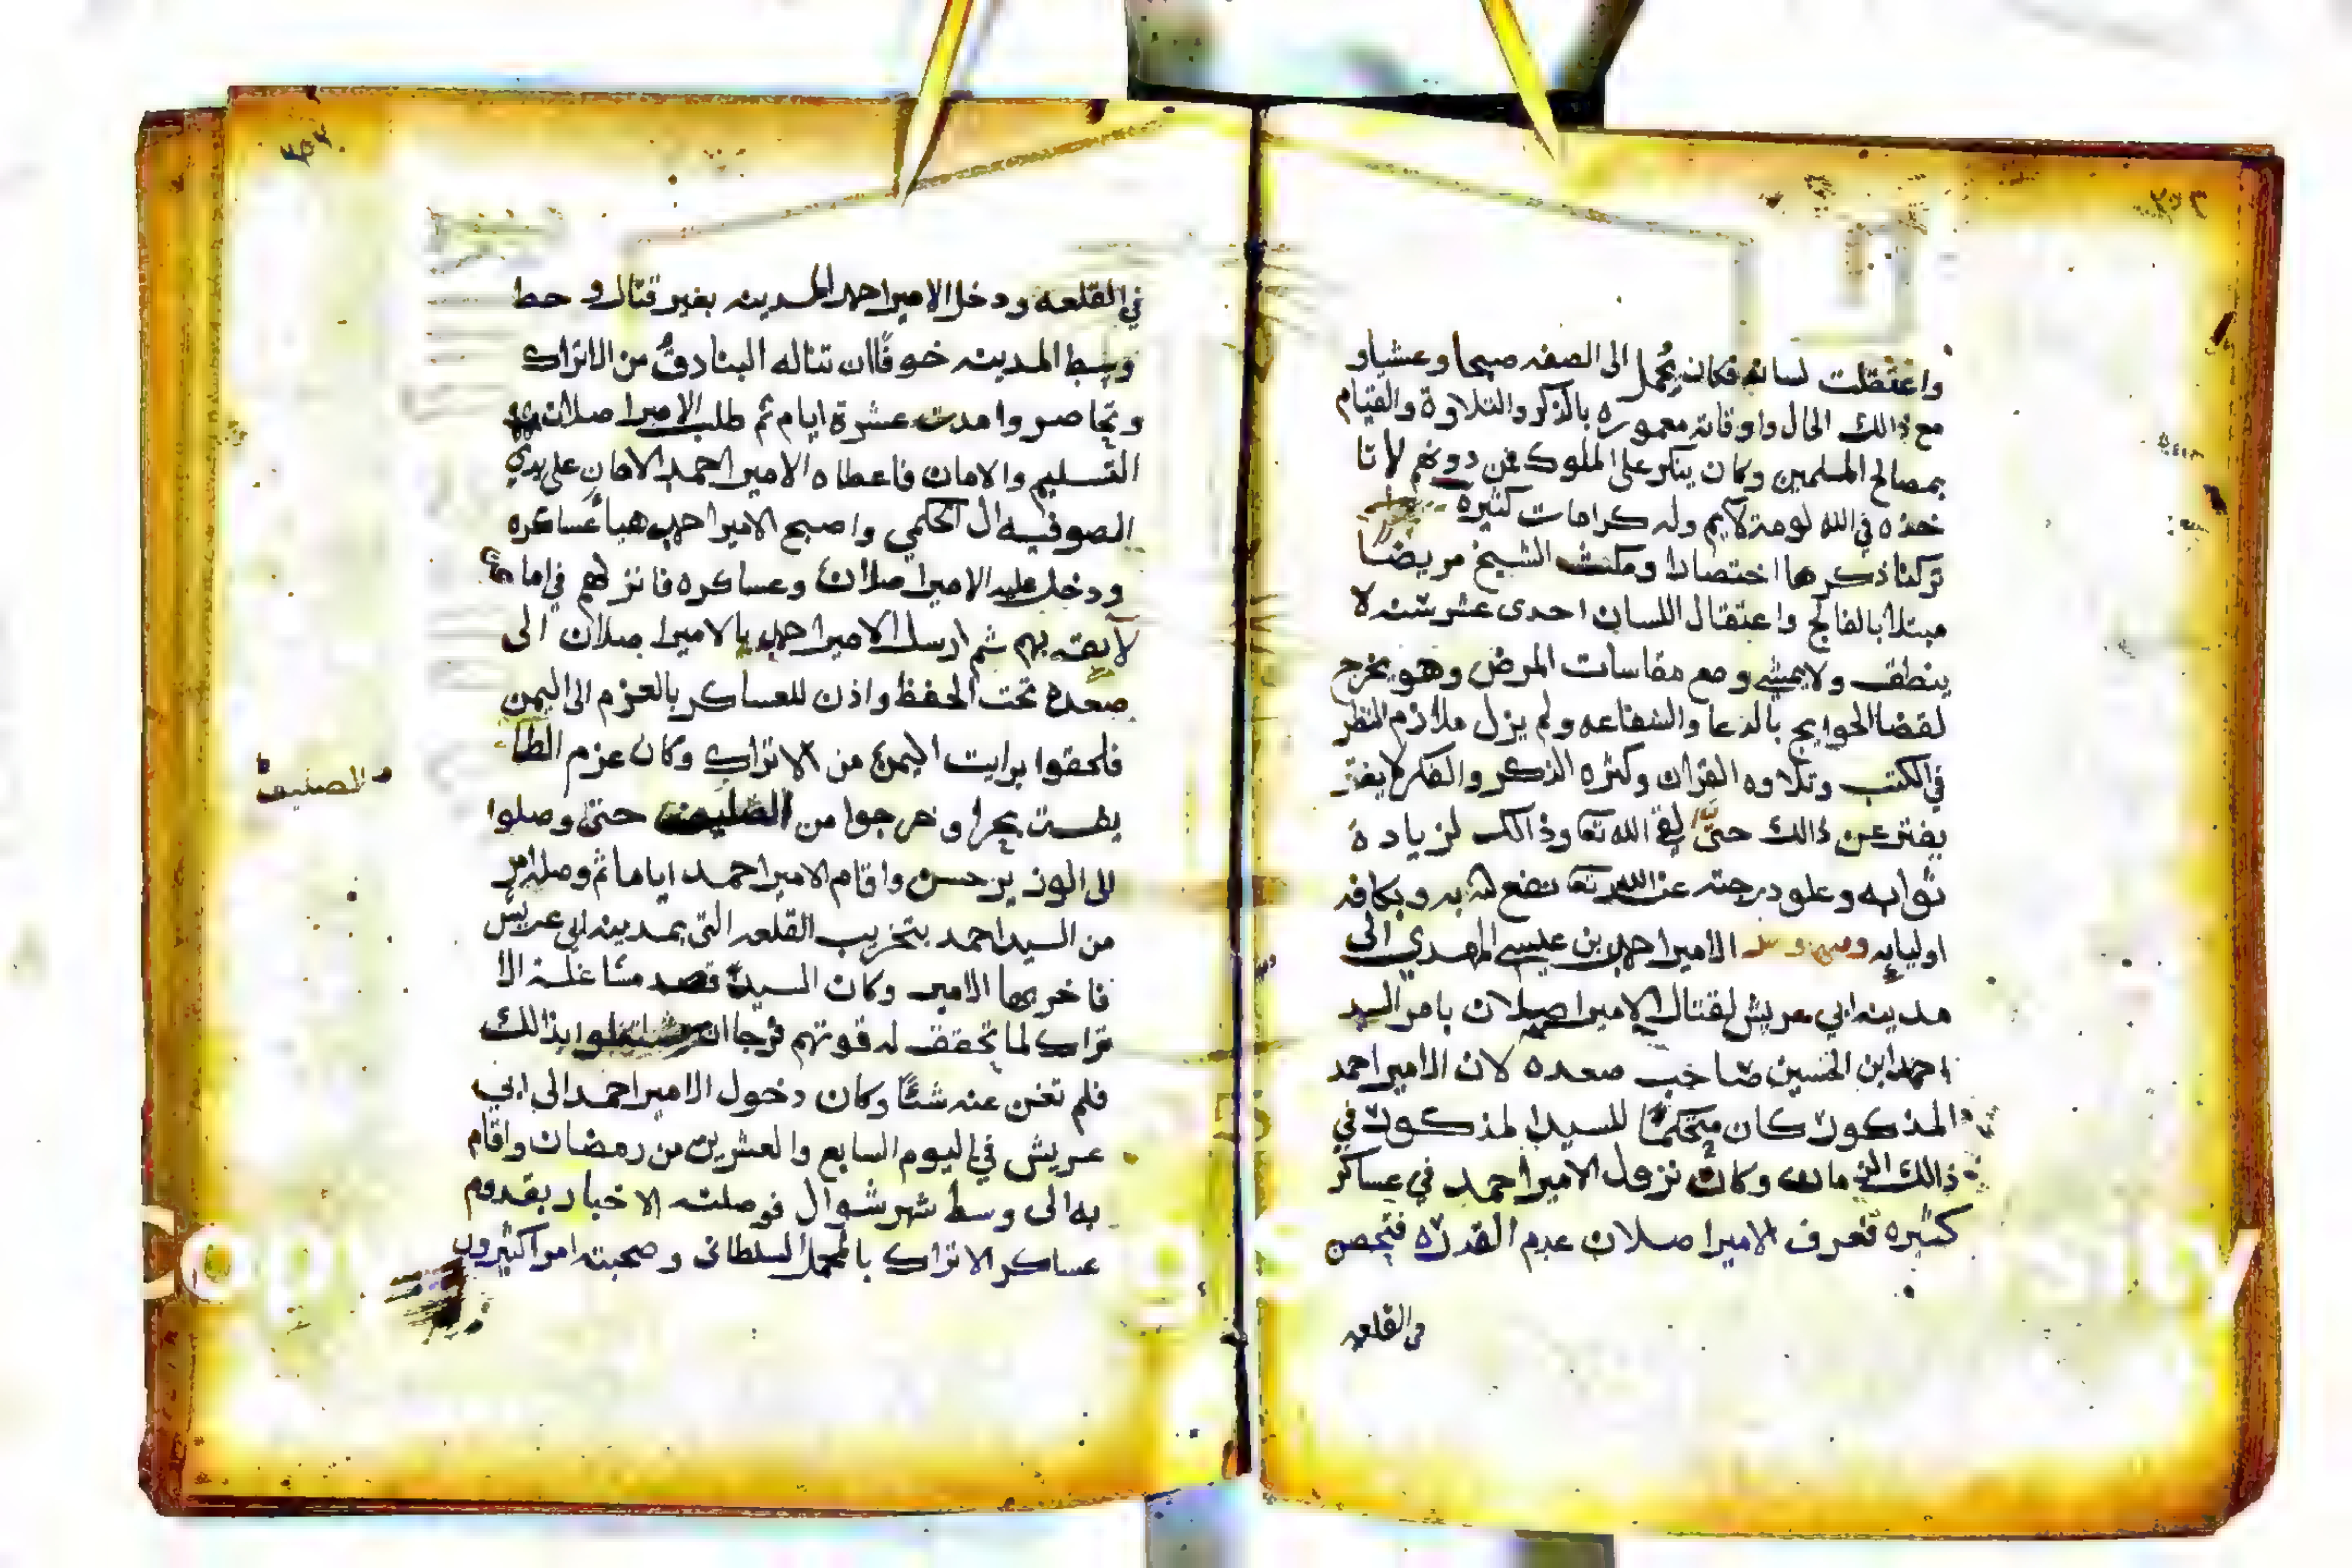 واعتقلت لسانه فكان يُحمل الى الصفه صبحا وعشيا و
مع ذالك الحال واوقاته معموره بالذكر والتلاوة والقيام
بمصالح المسلمين وكان ينكر على الملوك فمن دونهم لا تا
خذه في الله لومة لايم وله كرامات كثيره
تركنا ذكرها اختصارا ومكث الشيخ مريضا
مبتلا بالفالج واعتقال اللسان احدى عشر سنه لا
ينطق ولا يمشي ومع مقاسات المرض وهو يخرج
لقضا الحوايج بالدعا والشفاعه ولم يزل ملازم النظر
في الكتب وتلاوه القران وكثره الذكر والفكر لا يفتر
يفتر عن ذالك حتى لقي الله تعا وذالك لزيادة
ثوابه وعلو درجته عند الله تعا نفع الله به وبكافه
اوليايه الامير احمد بن عيسى المهدي الى
مدينه ابي عريش لقتال الامير اصلان بامر السيد
احمد ابن الحسين صاحب صعده لان الامير احمد
المذكور كان متحكمًا للسيد المذكور في
ذالك الزمان وكان نزول الامير احمد في عساكر
كثيره فعرف الامير اصلان عدم القدره فتحصن
في القلعه
في القلعه ودخل الامير احمد المدينه بغير قتال وحط
وسط المدينه خوفًا ان تناله البنادق من الاتراك
وتحاصروا مدت عشرة ايام ثم طلب الامير اصلان
التسليم والامان فاعطاه الامير احمد الامان على يدي
الصوفيه ال الحكمي واصبح الامير احمد هبأ عساكره
ودخل عليه الامير اصلان وعساكره فانزلهم في اماكن
لايقه بهم ثم ارسل الامير احمد بالامير اصلان الى
صعدة تحت الحفظ واذن للعساكر بالعزم الى اليمن
فلحقوا برايت اليمن من الاتراك وكان عزم الطا
يفت بحرا وخرجوا من الصليف حتى وصلوا
الصليف
الى الوزير حسن واقام الامير احمد اياما ثم وصله امر
من السيد احمد بتخريب القلعه التي بمدينه ابي عريش
فاخربها الامير وكان السيد قصد مشاغلة الا
تراك لما تحقق له قوتهم فرجا ان يشتغلوا بذالك
فلم تغن عنه شئًا وكان دخول الامير احمد الى ابي
عريش في اليوم السابع والعشرين من رمضان واقام
به الى وسط شهر شوال فوصلته الاخبار بقدوم
عساكر الاتراك بالمحمل السلطاني وصحبته امرا كثيرون